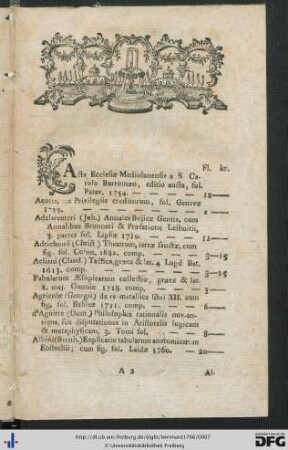 Fl. kr.
Acta Ecclesiæ Mediolanensis a S. Ca-
rolo Borromeo, editio aucta, fol.
Patav. 1754. — — — — 12—
Privilegiis creditorum, fol. Genevæ
1739. — — — — — 2—
Adelzreiteri (Joh.) Annales Bojicæ Gentis, cum
Annalibus Brunneri & Præfatione Leibnitii,
3. partes fol. Lipsiæ 1710. — — — 11—
Adrichomii (Christ.) Theatrum, terræ sanctæ, cum
fig. fol. Colon, 1682. comp. — — 3—15
Aeliani (Claud.) Tactica, græce & lat. 4. Lugd. Bat.
1613. comp. — — — — 3—15
Fabularum Æsopicarum collectio, græce & lat.
8. maj. Oxoniæ 1718. comp. — — 3—
Agricolæ (Georgii) de re metallica libri XII. cum
fig. fol. Basileæ 1721. comp. — — 6—
d'Aguirre (Dom.) Philosophia rationalis nov-an-
tiqua, seu disputationes in Aristotelis logicam
& metaphysicam, 3. Tomi fol. — — 8—
Albini (Bernh.) Explicatio tabularum anatomicarum
Eustachii; cum fig. fol. Leidæ 1760. — 20—
A 2 Al.
http://dl.ub.uni-freiburg.de/diglit/bernhard1766/0007
© Universitätsbibliothek Freiburg
gefördert durch
DFG